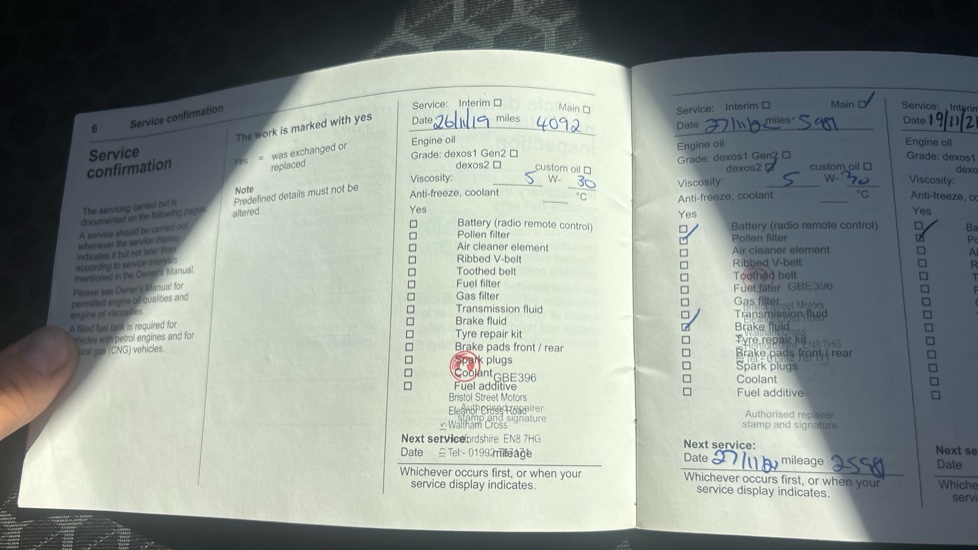 6 Service confirmation
Service
confirmation
The servicing carried out is
documented on the following pages.
A service should be carried out
whenever the service display
indicates it but not later than
according to service intervals
mentioned in the Owner's Manual.
Please see Owner's Manual for
permitted engine oil qualities and
engine oil viscosities.
A filled fuel tank is required for
vehicles with petrol engines and for
natural gas (CNG) vehicles.
The work is marked with yes
Yes = was exchanged or
replaced
Note
Predefined details must not be
altered.
Service: Interim ☐ Main ☐
Date 26/11/19 miles 4092
Engine oil
Grade: dexos1 Gen2 ☐
dexos2 ☐ custom oil ☐
Viscosity: 5 W- 30
Anti-freeze, coolant °C
Yes
☐ Battery (radio remote control)
☐ Pollen filter
☐ Air cleaner element
☐ Ribbed V-belt
☐ Toothed belt
☐ Fuel filter
☐ Gas filter
☐ Transmission fluid
☐ Brake fluid
☐ Tyre repair kit
☐ Brake pads front / rear
☐ Spark plugs
☐ Coolant GBE396
☐ Fuel additive
Bristol Street Motors
Eleanor Cross Road
Authorised repairer
stamp and signature
Waltham Cross
Next service: Hertfordshire EN8 7HG
Date Tel:- mileage
Whichever occurs first, or when your
service display indicates.
Service: Interim ☐ Main ☑
Date 27/11/ miles 5981
Engine oil
Grade: dexos1 Gen2 ☐
dexos2 ☑ custom oil ☐
Viscosity: 5 W- 30
Anti-freeze, coolant °C
Yes
☐ Battery (radio remote control)
☑ Pollen filter
☐ Air cleaner element
☐ Ribbed V-belt
☐ Toothed belt
☐ Fuel filter GBE396
☐ Gas filter
Bristol Street Motors
☐ Transmission fluid
☑ Brake fluid
☐ Tyre repair kit
EN8 7HG
☐ Brake pads front / rear
☐ Spark plugs
☐ Coolant
☐ Fuel additive
Authorised repairer
stamp and signature
Next service:
Date 27/11/ mileage
Whichever occurs first, or when your
service display indicates.
Service: Interim
Date 19/11/21
Engine oil
Grade: dexos1
Viscosity:
Anti-freeze,
Yes
Next se
Date
Whiche
servi